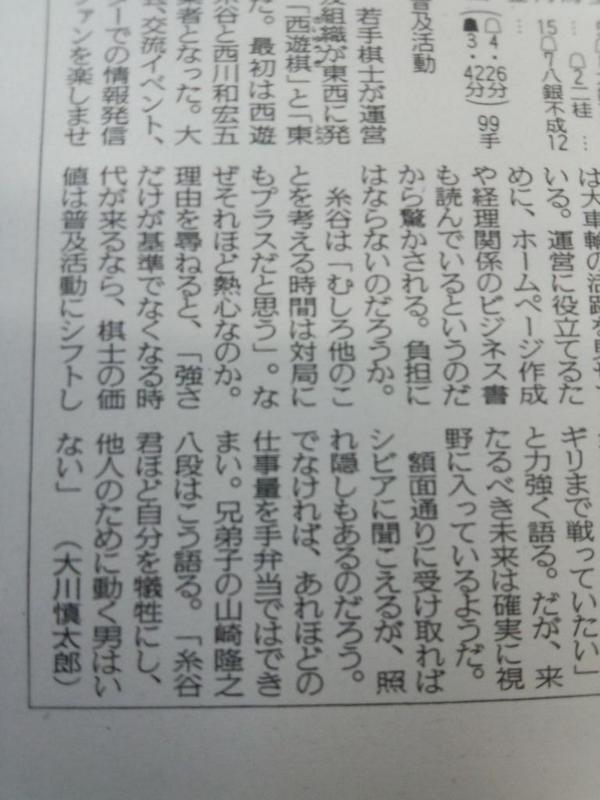 15☖7八銀不成12
☖2二桂 …
(☖4・26分) 99手
(☗3・42分)
普及活動
若手棋士が運営
及組織が東西に発
「西遊棋」と「東
た。最初は西遊
糸谷と西川和宏五
業者となった。大
会、交流イベント、
ターでの情報発信
ファンを楽しませ
は大車輪の活躍を
いる。運営に役立てるた
めに、ホームページ作成
や経理関係のビジネス書
も読んでいるというのだ
から驚かされる。負担に
はならないのだろうか。
糸谷は「むしろ他のこ
とを考える時間は対局に
もプラスだと思う」。な
ぜそれほど熱心なのか。
理由を尋ねると、「強さ
だけが基準でなくなる時
代が来るなら、棋士の価
値は普及活動にシフトし
ギリまで戦っていたい」
と力強く語る。だが、来
たるべき未来は確実に視
野に入っているようだ。
額面通りに受け取れば
シビアに聞こえるが、照
れ隠しもあるのだろう。
でなければ、あれほどの
仕事量を手弁当ではでき
まい。兄弟子の山崎隆之
八段はこう語る。「糸谷
君ほど自分を犠牲にし、
他人のために動く男はい
ない」　（大川慎太郎）